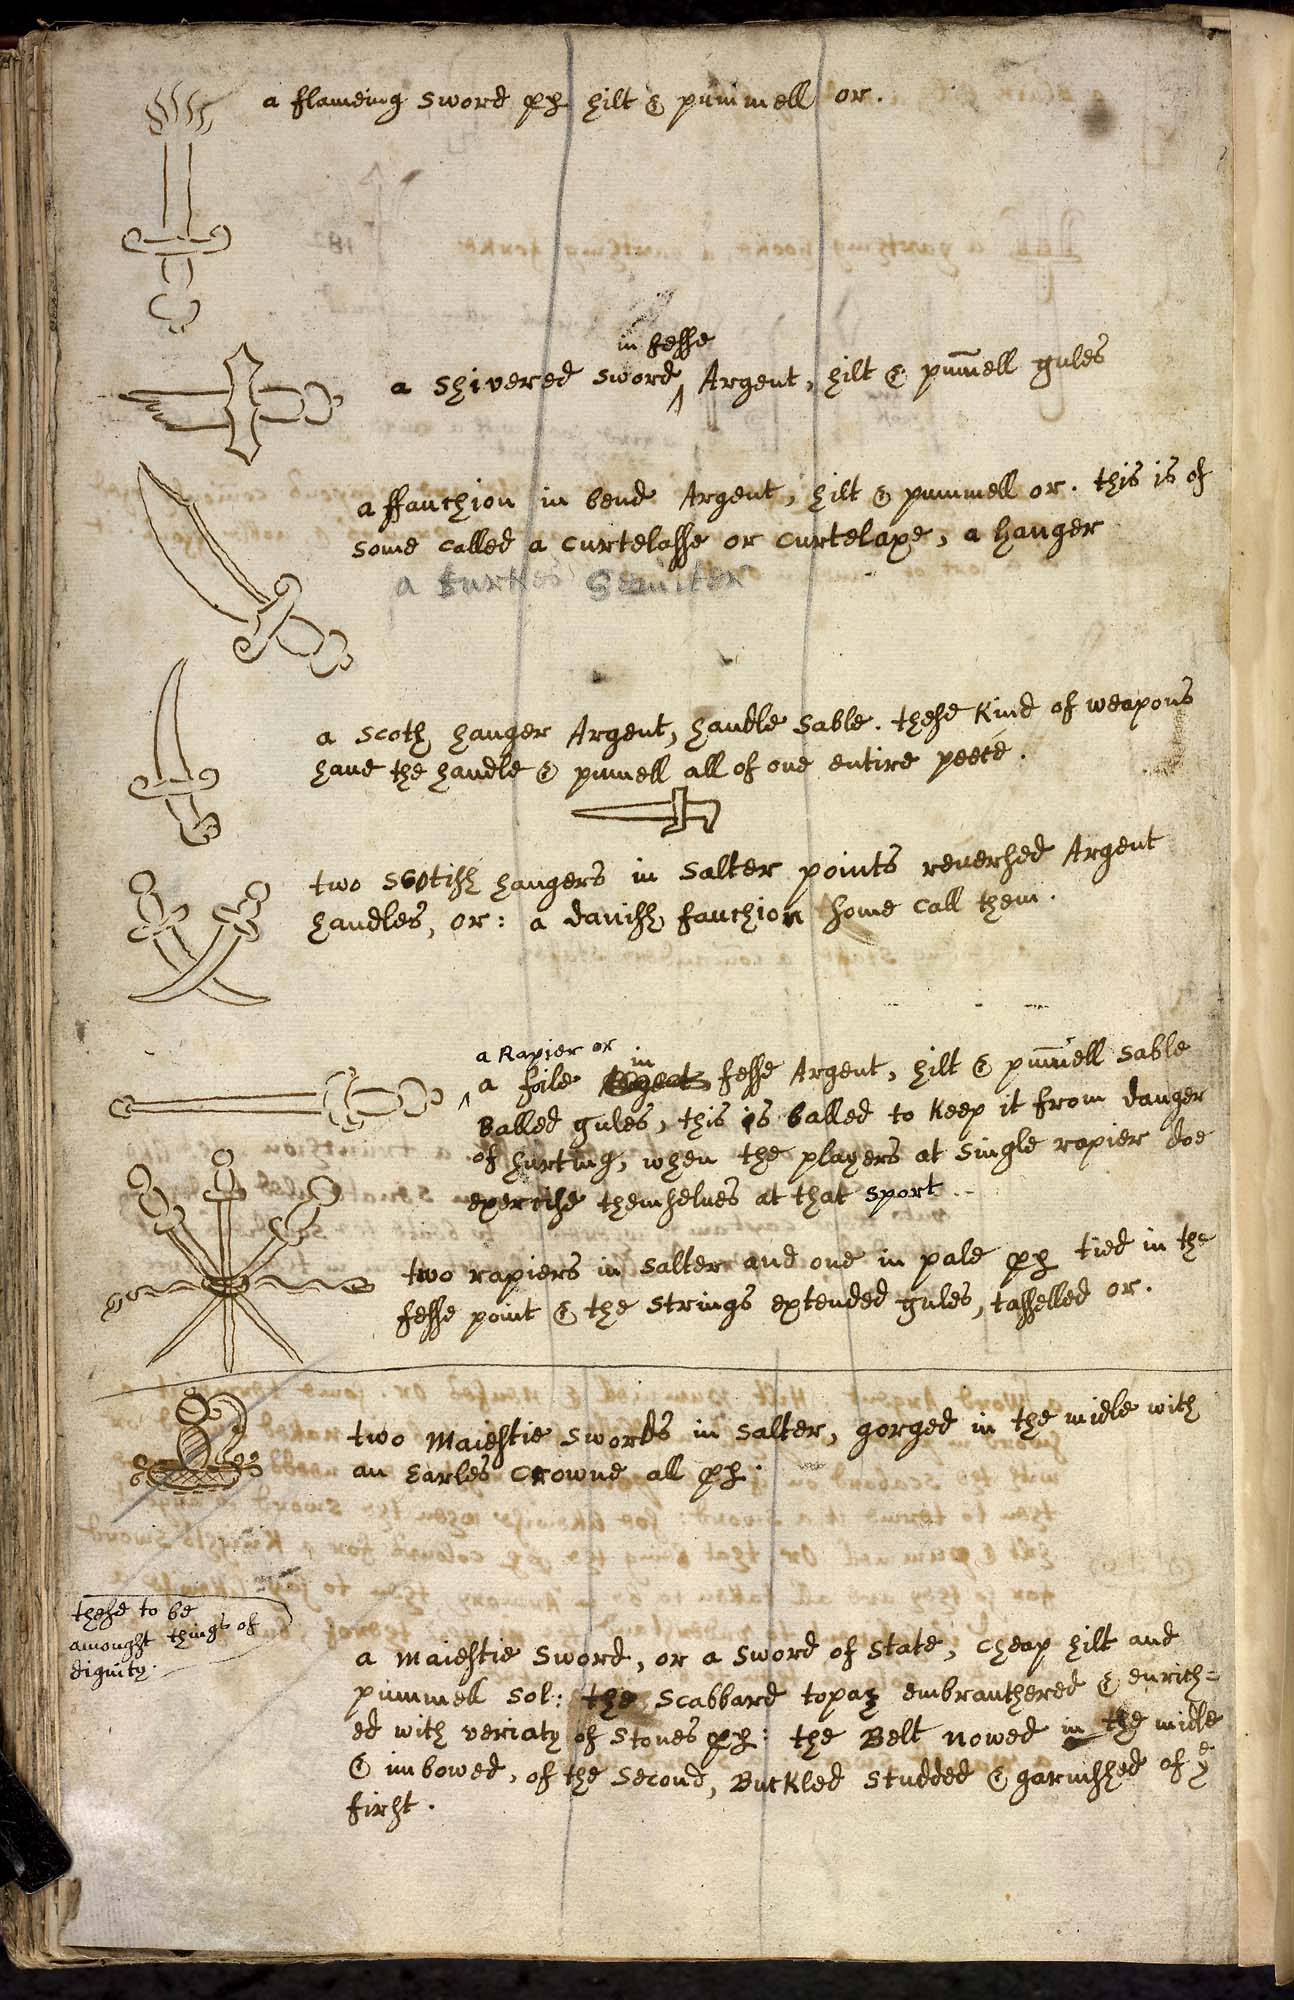 a flameing sword ꝓꝑ hilt & pummell or.
in fesse
a shivered sword ^ Argent, hilt & pum̄ell gules
a ffauchion in bend Argent, hilt & pummell or. this is of
some called a curtelasse or curtelaxe, a hanger
a turkes Semiter
a scoth hanger Argent, handle sable. these kind of weapons
haue the handle & pumell all of one entire peece.
two Scotish hangers in salter points reuersed Argent
handles, or: a danish fauchion some call them.
a Rapier or in
^ a foile fesse Argent, hilt & pum̄ell sable
Balled gules, this is balled to keep it from danger
of hurting, when the players at single rapier doe
exercise themselues at that sport
two rapiers in salter and one in pale pp tied in the
fesse point & the strings extended gules, tasselled or.
two Maiestie swords in salter, gorged in the midle with
an Earles Crowne all pp.
these to be
amongst things of
dignity.
a Maiestie sword, or a sword of state, cheap hilt and
pummell sol: the scabbard topaz embrauthered & enrich=
ed with veriaty of stones pp: the Belt nowed in the midle
& imbowed, of the second, Buckled studded & garnished of ye
first.